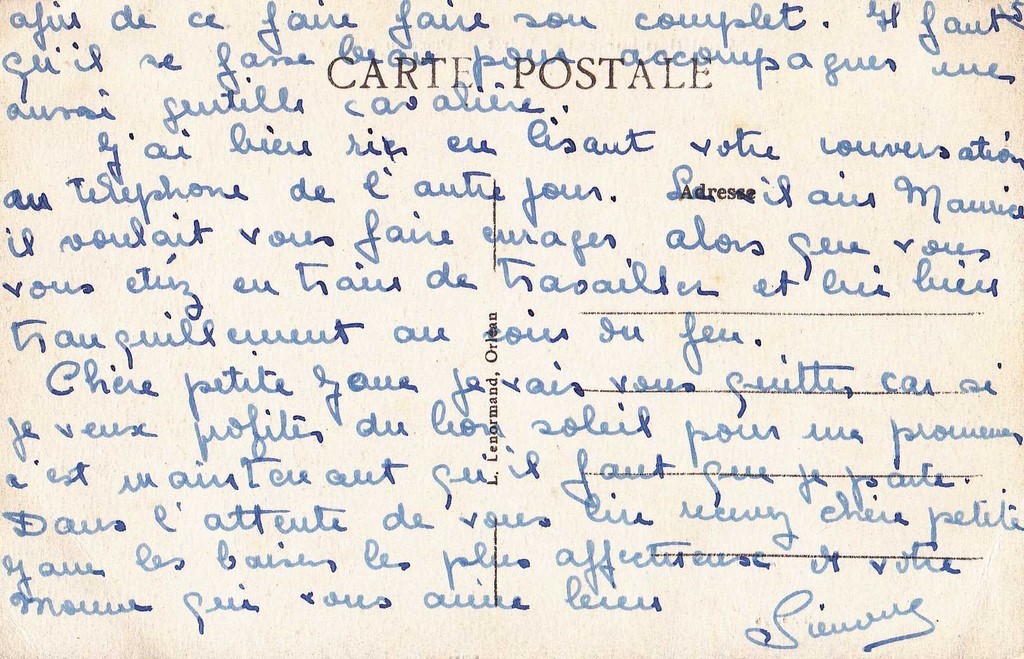 afin de ce faire faire son complet. Il faut
qu'il se fasse beau pour accompagner une
CARTE POSTALE
aussi gentille cavalière.
J'ai bien ri en lisant votre conversation
au téléphone de l'autre jour.
Adresse
Maurice
il voulait vous faire enrager alors que vous
vous étiez en train de travailler et lui bien
tranquillement au coin du feu.
L. Lenormand, Orléan
Chère petite Jane je vais vous quitter car si
je veux profiter du bon soleil pour me promener
c'est maintenant qu'il faut que je parte.
Dans l'attente de vous lire recevez chère petite
Jane les baisers les plus affectueux de votre
qui vous aime bien